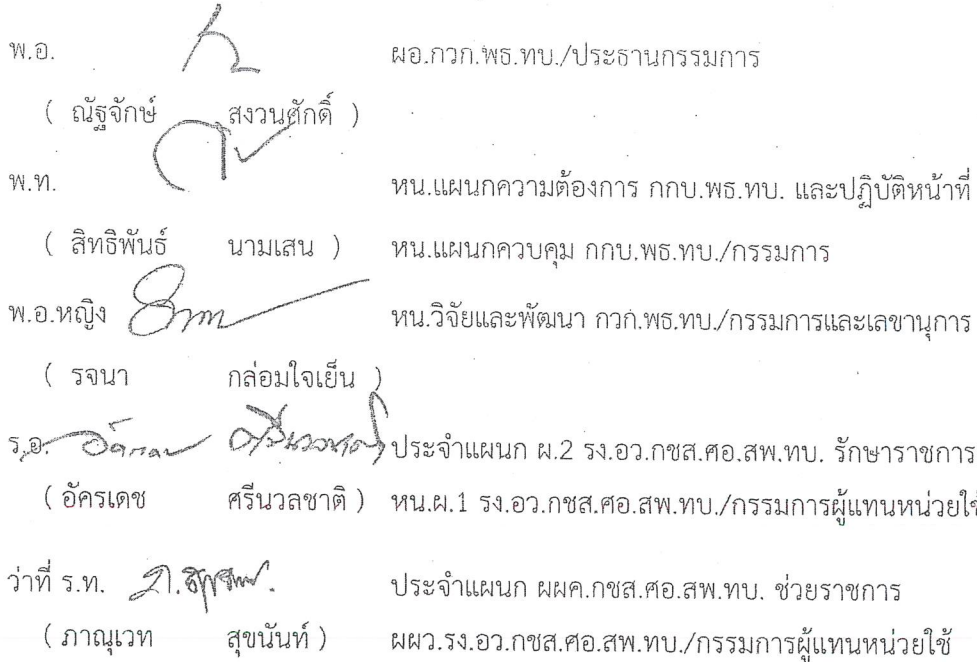 พ.อ. ผอ.กวก.พธ.ทบ./ประธานกรรมการ
( ณัฐจักษ์ สงวนศักดิ์ )
พ.ท. หน.แผนกความต้องการ กกบ.พธ.ทบ. และปฏิบัติหน้าที่
( สิทธิพันธ์ นามเสน ) หน.แผนกควบคุม กกบ.พธ.ทบ./กรรมการ
พ.อ.หญิง หน.วิจัยและพัฒนา กวก.พธ.ทบ./กรรมการและเลขานุการ
( รจนา กล่อมใจเย็น )
ร.อ. ประจำแผนก ผ.2 รง.อว.กชส.ศอ.สพ.ทบ. รักษาราชการ
( อัครเดช ศรีนวลชาติ ) หน.ผ.1 รง.อว.กชส.ศอ.สพ.ทบ./กรรมการผู้แทนหน่วยใช้
ว่าที่ ร.ท. ประจำแผนก ผผค.กชส.ศอ.สพ.ทบ. ช่วยราชการ
( ภาณุเวท สุขนันท์ ) ผผว.รง.อว.กชส.ศอ.สพ.ทบ./กรรมการผู้แทนหน่วยใช้